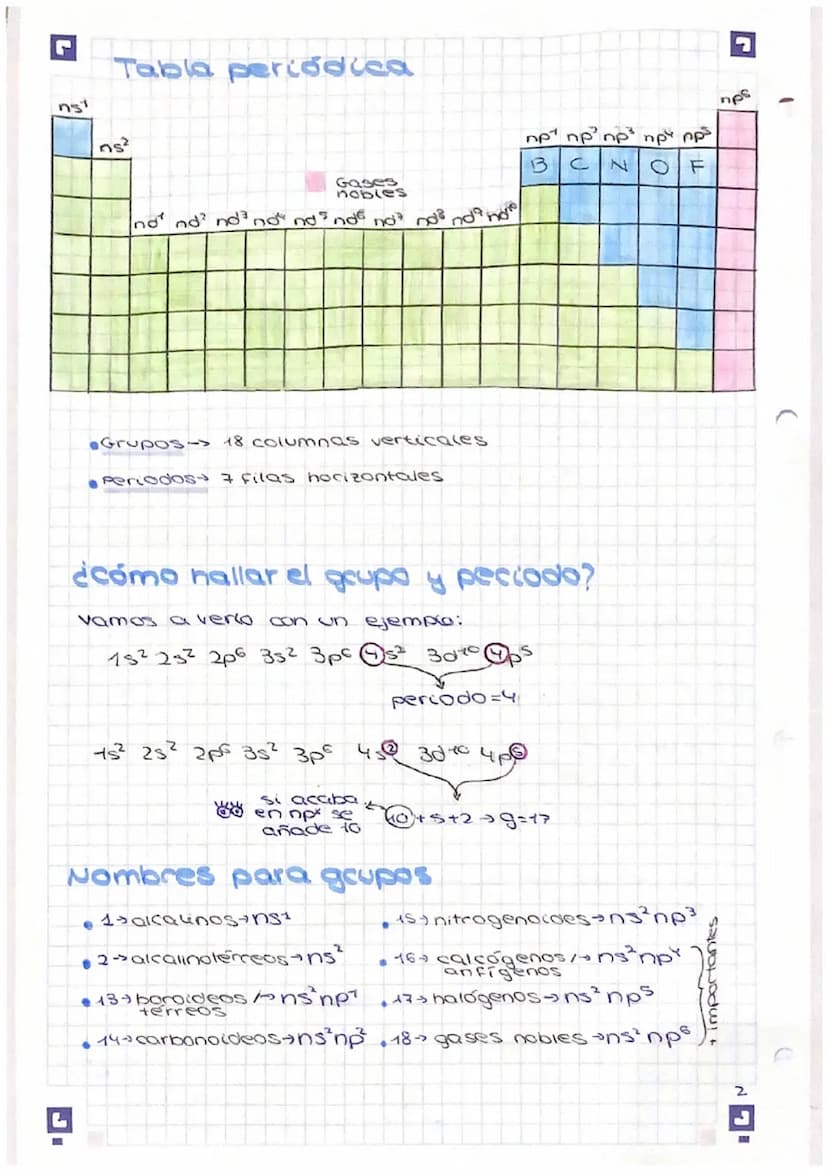 Tabla periódica
ns¹
np⁶
ns²
np¹ np² np³ np⁴ np⁵
B C N O F
Gases
nobles
nd¹ nd² nd³ nd⁴ nd⁵ nd⁶ nd⁷ nd⁸ nd⁹ nd¹⁰
• Grupos → 18 columnas verticales
• Periodos → 7 filas horizontales
¿Cómo hallar el grupo y periodo?
Vamos a verlo con un ejemplo:
1s² 2s² 2p⁶ 3s² 3p⁶ 4s² 3d¹⁰ 4p⁵
periodo=4
1s² 2s² 2p⁶ 3s² 3p⁶ 4s² 3d¹⁰ 4p⁵
si acaba
en npˣ se
añade 10
10+5+2 → g=17
Nombres para grupos
• 1→alcalinos→ns¹
• 2→alcalinotérreos→ns²
• 13→boroideos/→ns²np¹
térreos
• 14→carbonoideos→ns²np²
• 15→nitrogenoides→ns²np³
• 16→calcógenos/→ns²np⁴
anfígenos
• 17→halógenos→ns²np⁵
• 18→gases nobles→ns²np⁶
+ importantes
2